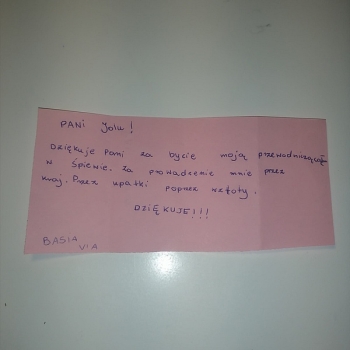 PANI Jolu!
Dziękuję Pani za bycie moją przewodniczącą
w śpiewie. Za prowadzenie mnie przez
kraj. Przez upadki poprzez wzloty.
DZIĘKUJĘ!!!
BASIA
VIA